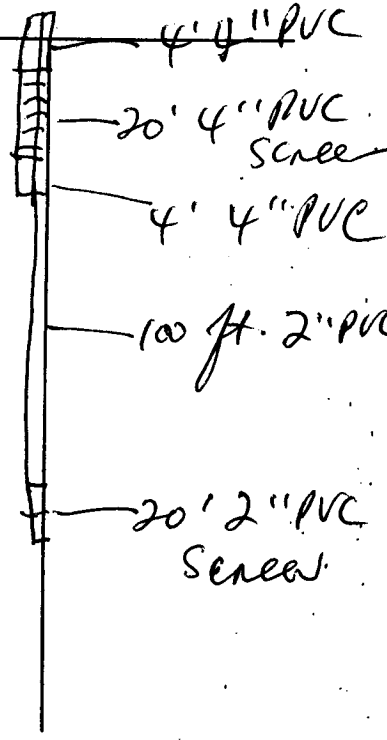 4' 4" PVC
20' 4" PVC
Screen
4' 4" PVC
100 ft. 2" PVC
20' 2" PVC
Screen